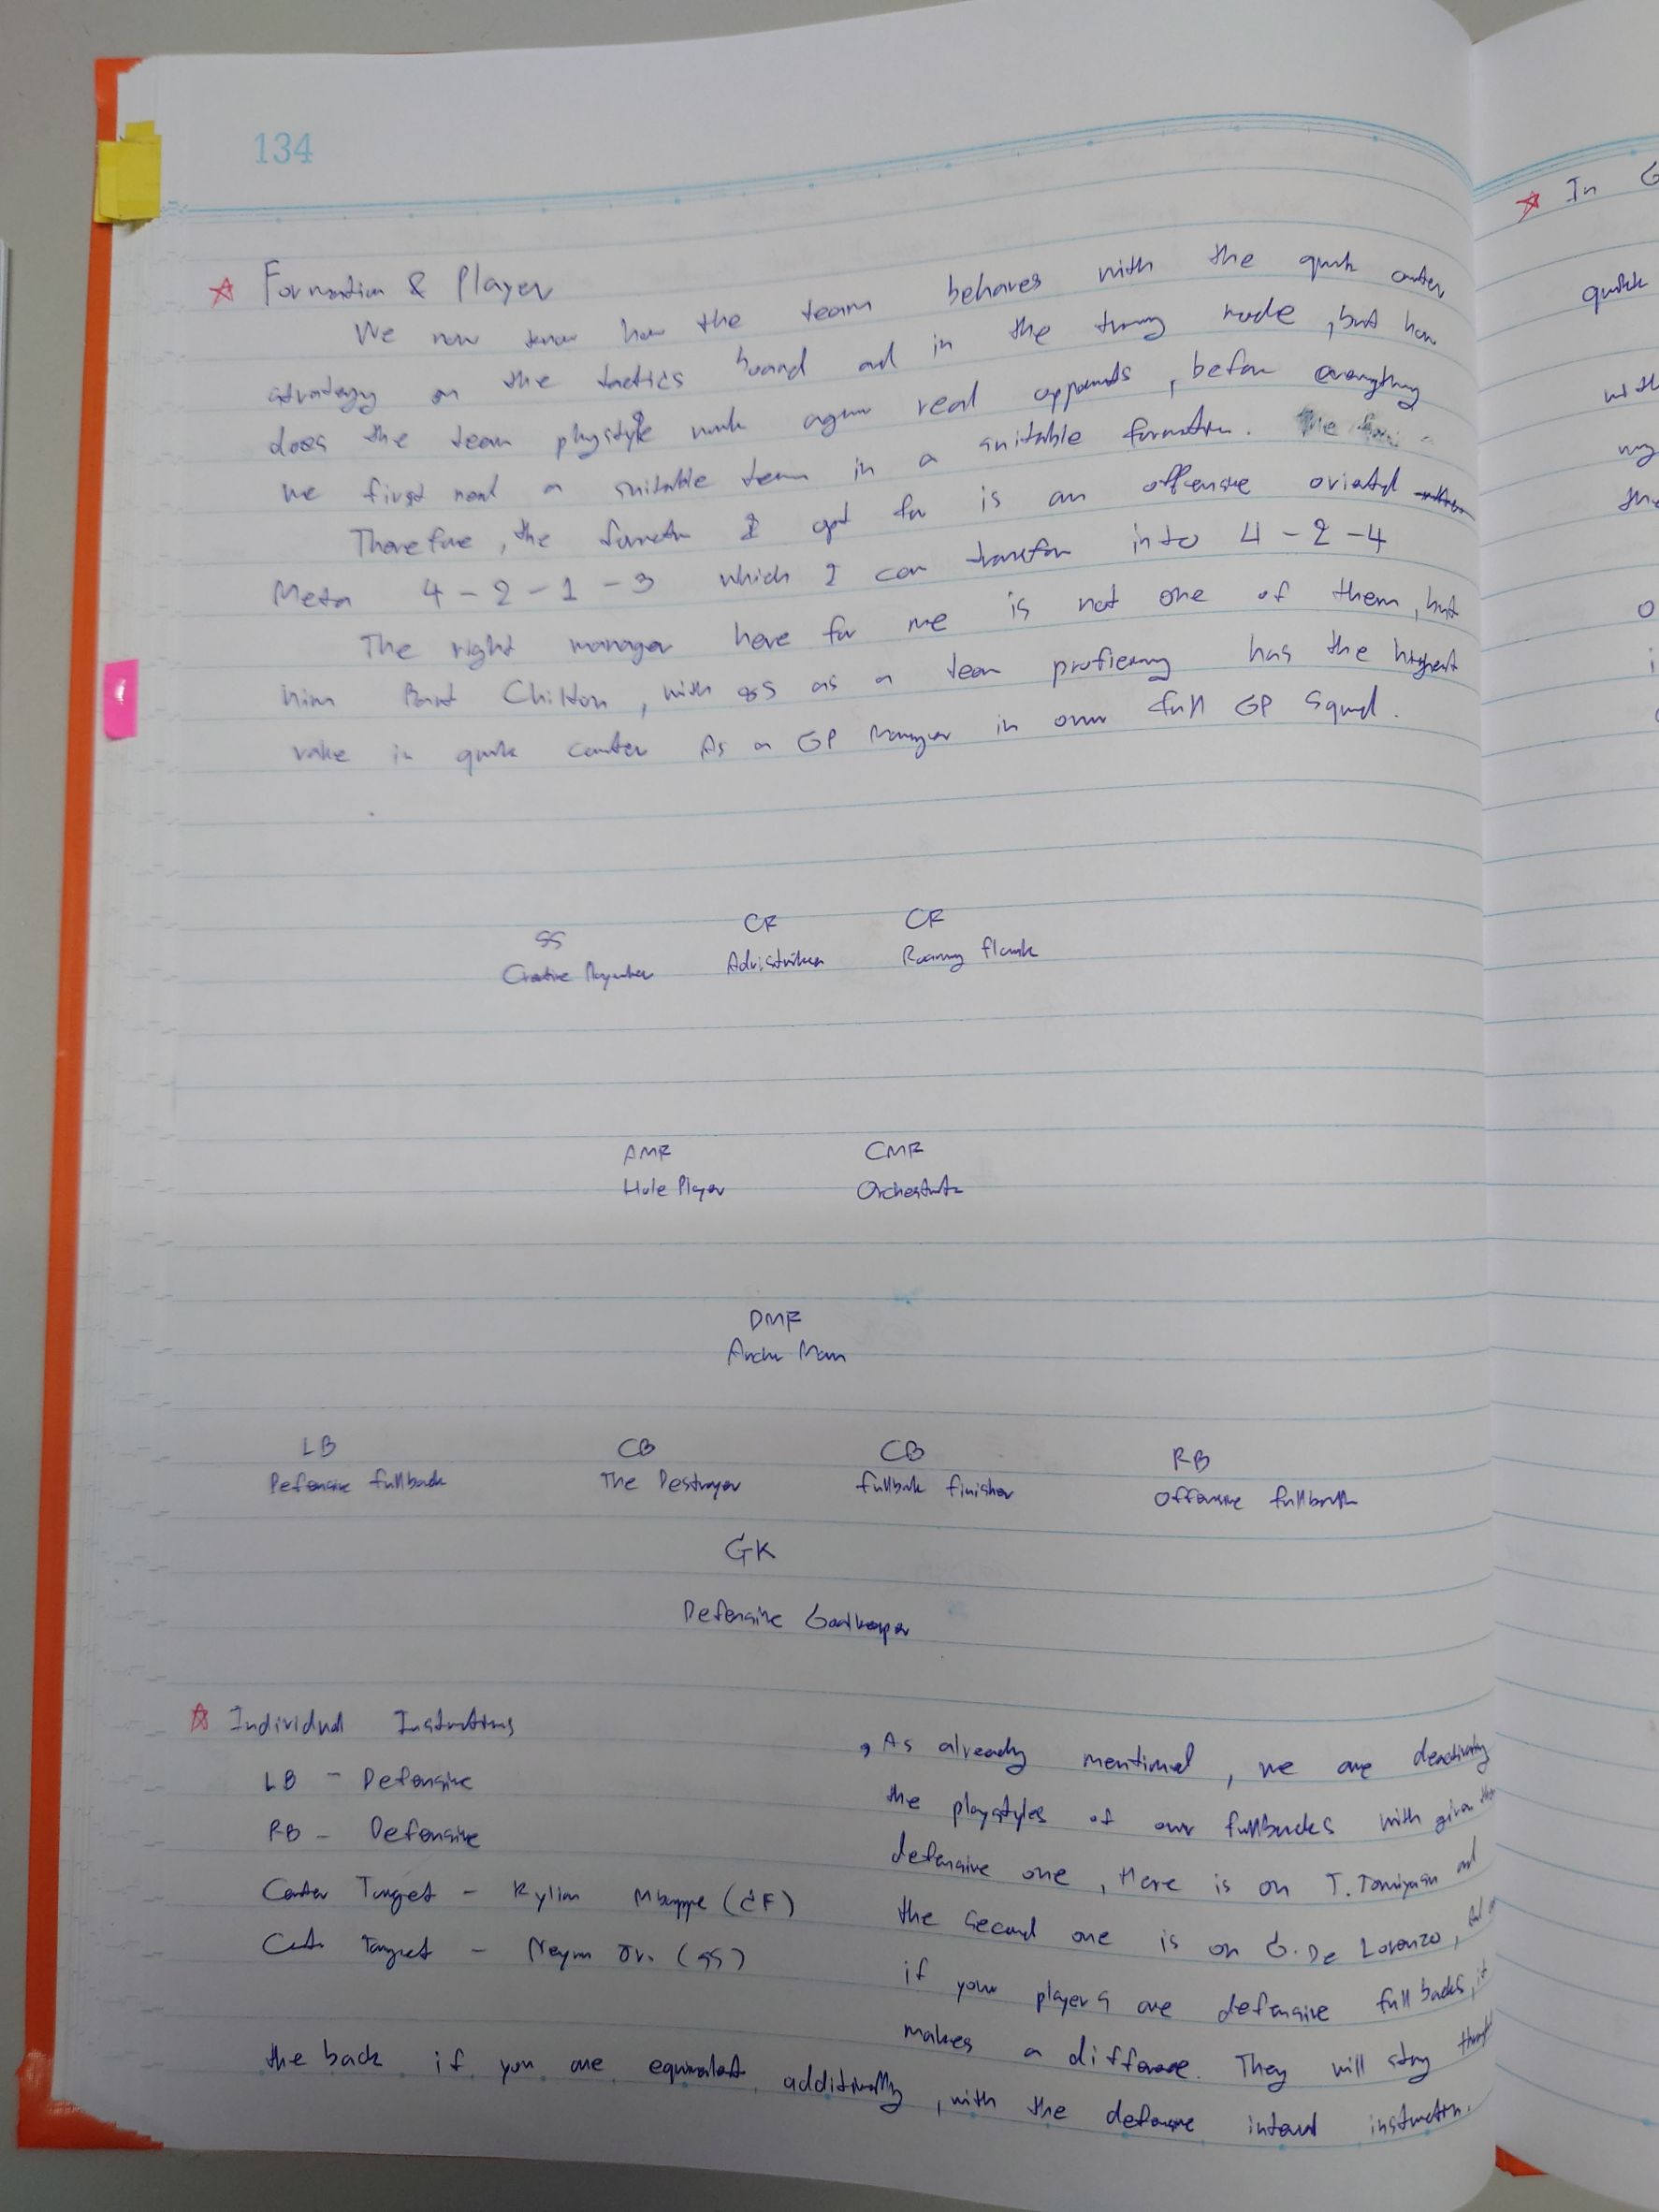 134
☆ Formation & Player
We now know how the team behaves with the quick counter
strategy on the tactics board and in the training mode, but how
does the team playstyle work against real opponents, before everything
we first need a suitable team in a suitable formation. The
Therefore, the formation I opt for is an offensive oriented
Meta 4-2-1-3 which I can transform into 4-2-4
The right manager here for me is not one of them, but
him Chilton, with 85 as a team proficiency has the highest
value in quick counter As a GP Manager in our full GP Squad.
SS CF CF
Creative Playmaker Adv.striker Roaming flank
AMF CMF
Hole Player Orchestrator
DMF
Anchor Man
LB CB CB RB
Defensive fullback The Destroyer fullback finisher Offensive fullback
GK
Defensive Goalkeeper
☆ Individual Instructions
LB - Defensive
RB - Defensive
Center Target - Kylian Mbappe (CF)
Center Target - Neymar Jr. (SS)
, As already mentioned, we are deactivating
the playstyles of our fullbacks with given the
defensive one, Here is on T. Tomiyasu and
the second one is on G. De Lorenzo,
if your players are defensive full backs, it
makes a difference. They will stay
the back if you are equivalent additionally, with the defensive intend instruction.
☆ In G
quick